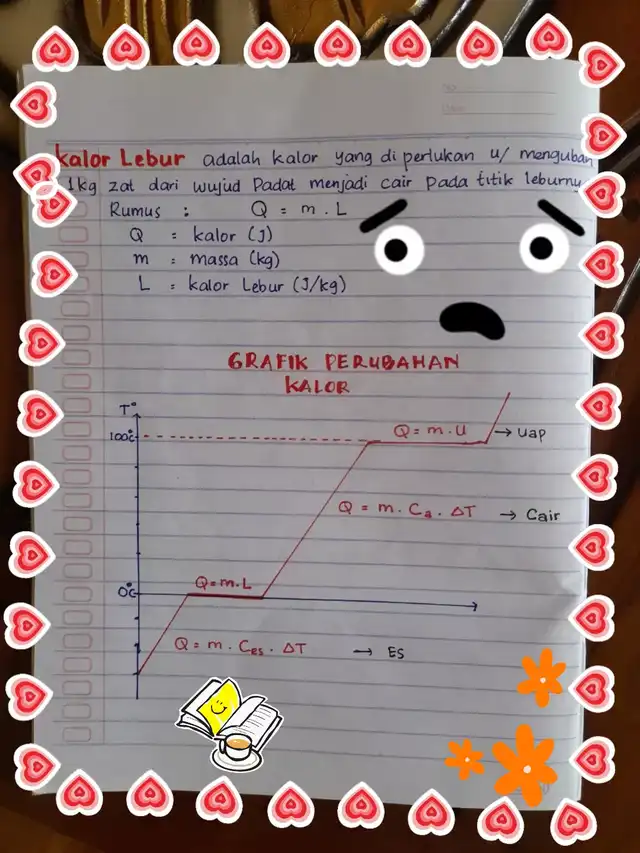 kalor Lebur adalah kalor yang di perlukan u/ mengubah
1kg zat dari wujud Padat menjadi cair Pada titik leburny
Rumus : Q = m . L
Q = kalor (J)
m = massa (kg)
L = kalor Lebur (J/kg)
GRAFIK PERUBAHAN
KALOR
T°
100°C
Q = m . U → Uap
Q = m . Ca . ΔT → Cair
Q = m . L
0°C
Q = m . Ces . ΔT → Es